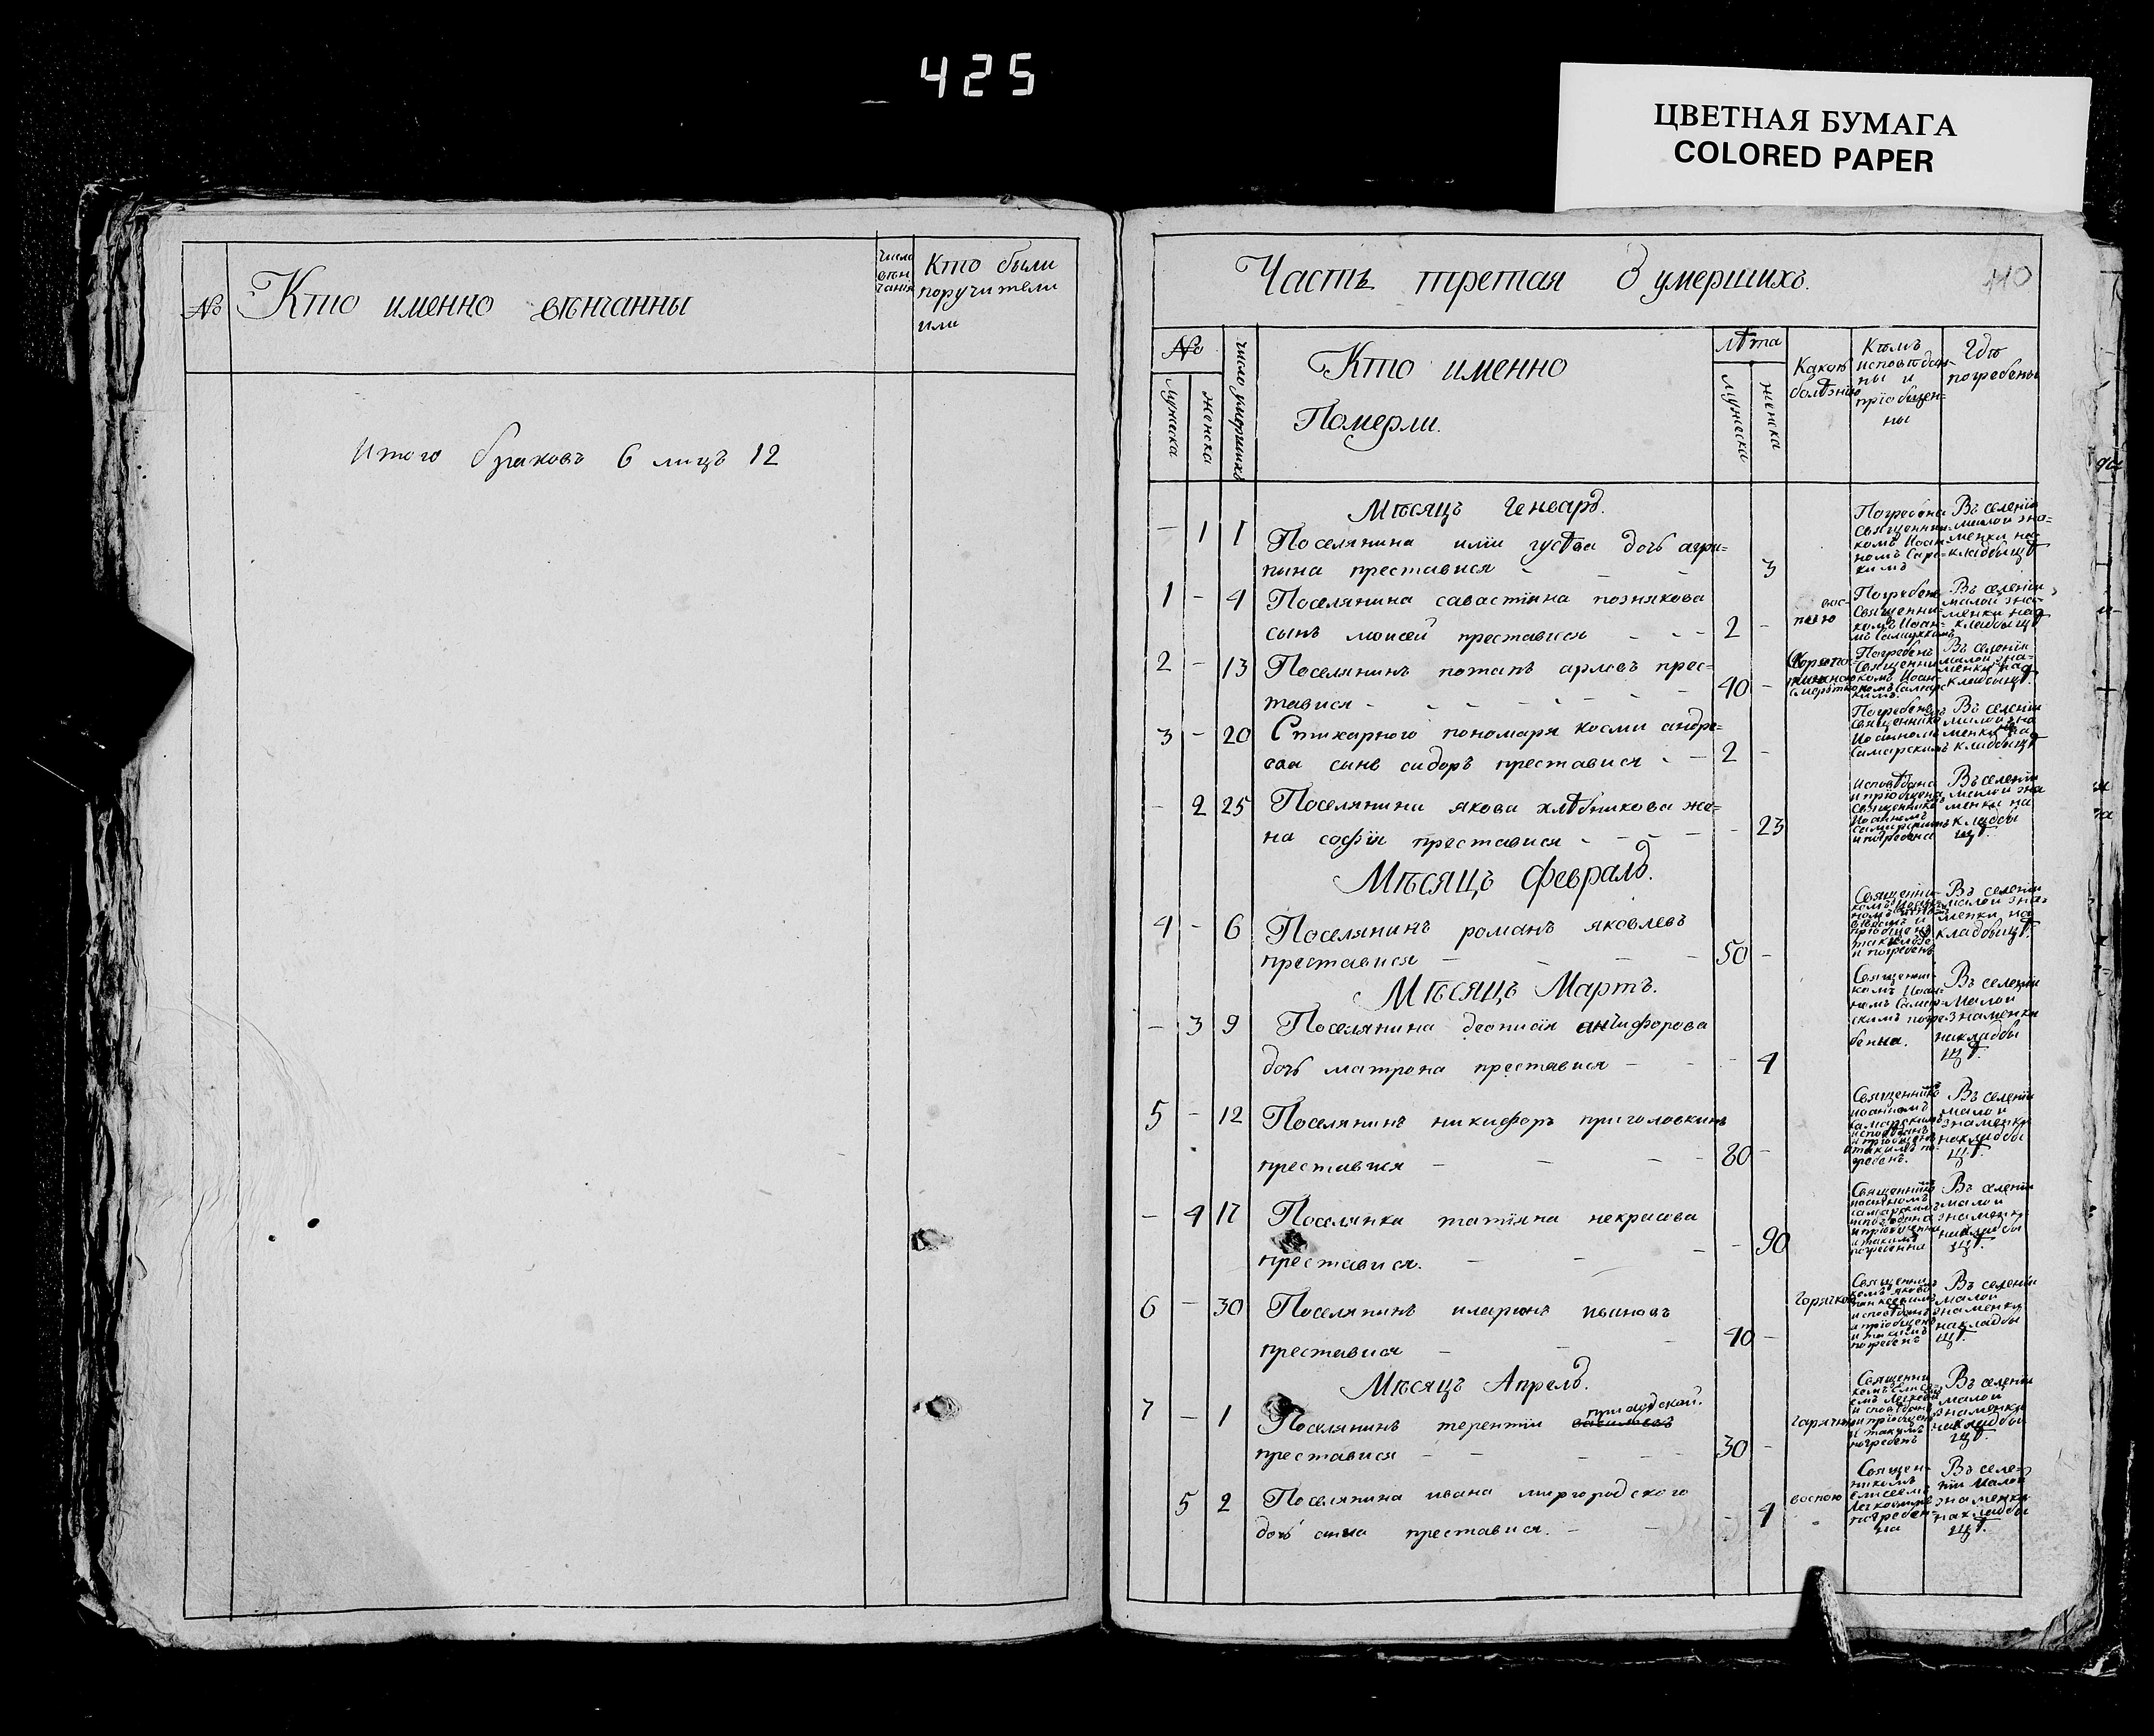 425
ЦВЕТНАЯ БУМАГА
COLORED PAPER
№
Кто именно вѣнчанны
число
вѣн
чанія
Кто были
поручители
или
Итого браковъ 6 лицъ 12
Часть третая О умершихъ.
110
№
мужеска
женска
число умершихъ
Кто именно
Померли.
лѣта
мужеска
женска
Какою
болѣзнію
Кѣмъ
исповѣдан-
ны и
пріобщен-
ны
Гдѣ
погребены
Мѣсяцъ Генварь.
- 1 1 Поселянина иліи гусѣва дочь агри=
пина преставися - - - 3
Погребена
священни=
комъ Иоан
номъ Сам=
кимъ
Въ селеніи
малой зна=
менки на
кладбищѣ
1 - 4 Поселянина савастіяна познякова
сынъ моисей преставися - - - 2 -
вос-
пою
Погребенъ
священни=
комъ Иоан-
Въ селеніи
малой зна-
менки на
кладбищѣ
2 - 13 Поселянинъ потапъ прес=
тавися - - - - - - 40 -
Погребенъ
священни
комъ Иоан-
номъ Самар-
кимъ
Въ селеніи
малой зна-
менки на
кладбищѣ
3 - 20 Стихарного пономаря косми андре=
ева сынъ сидоръ преставися - - 2 -
Погребенъ
священникъ
Иоанномъ
Самарскимъ
Въ селеніи
малой зна
менки на
кладбищѣ
- 2 25 Поселянина якова хлѣбникова же=
на софія преставися - - - - - 23
Исповѣдана
и пріобщена
священникъ
Иоанномъ
самарскимъ
и погребена
Въ селеніи
малой зна
менки на
кладбы
щѣ.
Мѣсяцъ Февраль.
4 - 6 Поселянинъ романъ яковлевъ
преставися - - - - 50 -
Священни-
комъ Иоан-
номъ
и
пріобщенъ
и погребенъ
Въ селеніи
малой зна-
менки на
кладбищѣ.
Мѣсяцъ Мартъ.
- 3 9 Поселянина деонисія анчифорова
дочь матрона преставися - - - 4
Священни-
комъ Иоан-
номъ Самар-
скимъ погре
бенна.
Въ селеніи
Малой
Знаменки
накладбы
щѣ.
5 - 12 Поселянинъ никифоръ приголовкинъ
преставися - - - - 80 -
Священникъ
иоанномъ
самарскимъ
исповѣданъ
и пріобщенъ
и такимъ по-
гребенъ.
Въ селеніи
малой
знаменки
накладбы
щѣ.
- 4 17 Поселянка татіяна некрасова
преставися. - - - - 90
Священникъ
иоанномъ
самарскимъ
исповѣдана
и пріобщенна
и такимъ
погребенна
Въ селеніи
малой
знаменки
накладбы
щѣ.
6 - 30 Поселянинъ иларіонъ ивановъ
преставися - - - 40 -
горячкою
Священни
комъ яковомъ
исповѣданъ
и пріобщенъ
и такимъ
погребенъ
Въ селеніи
малой
знаменки
накладбы
щѣ.
Мѣсяцъ Апрель.
7 - 1 Поселянинъ терентіи васильевъ
преставися - - - - 30 -
горячкою
Священни
комъ Елисе-
емъ Легкобы
исповѣданъ
и пріобщенъ
и такимъ
погребенъ
Въ селеніи
малой
знаменки
накладбы
щѣ.
5 2 Поселянина ивана миргородского
дочь анна преставися. - - - 4
воспою
Священ-
никомъ
елисеемъ
погребен-
на
Въ селе=
ніи Малой
знаменки
накладбы
щѣ.